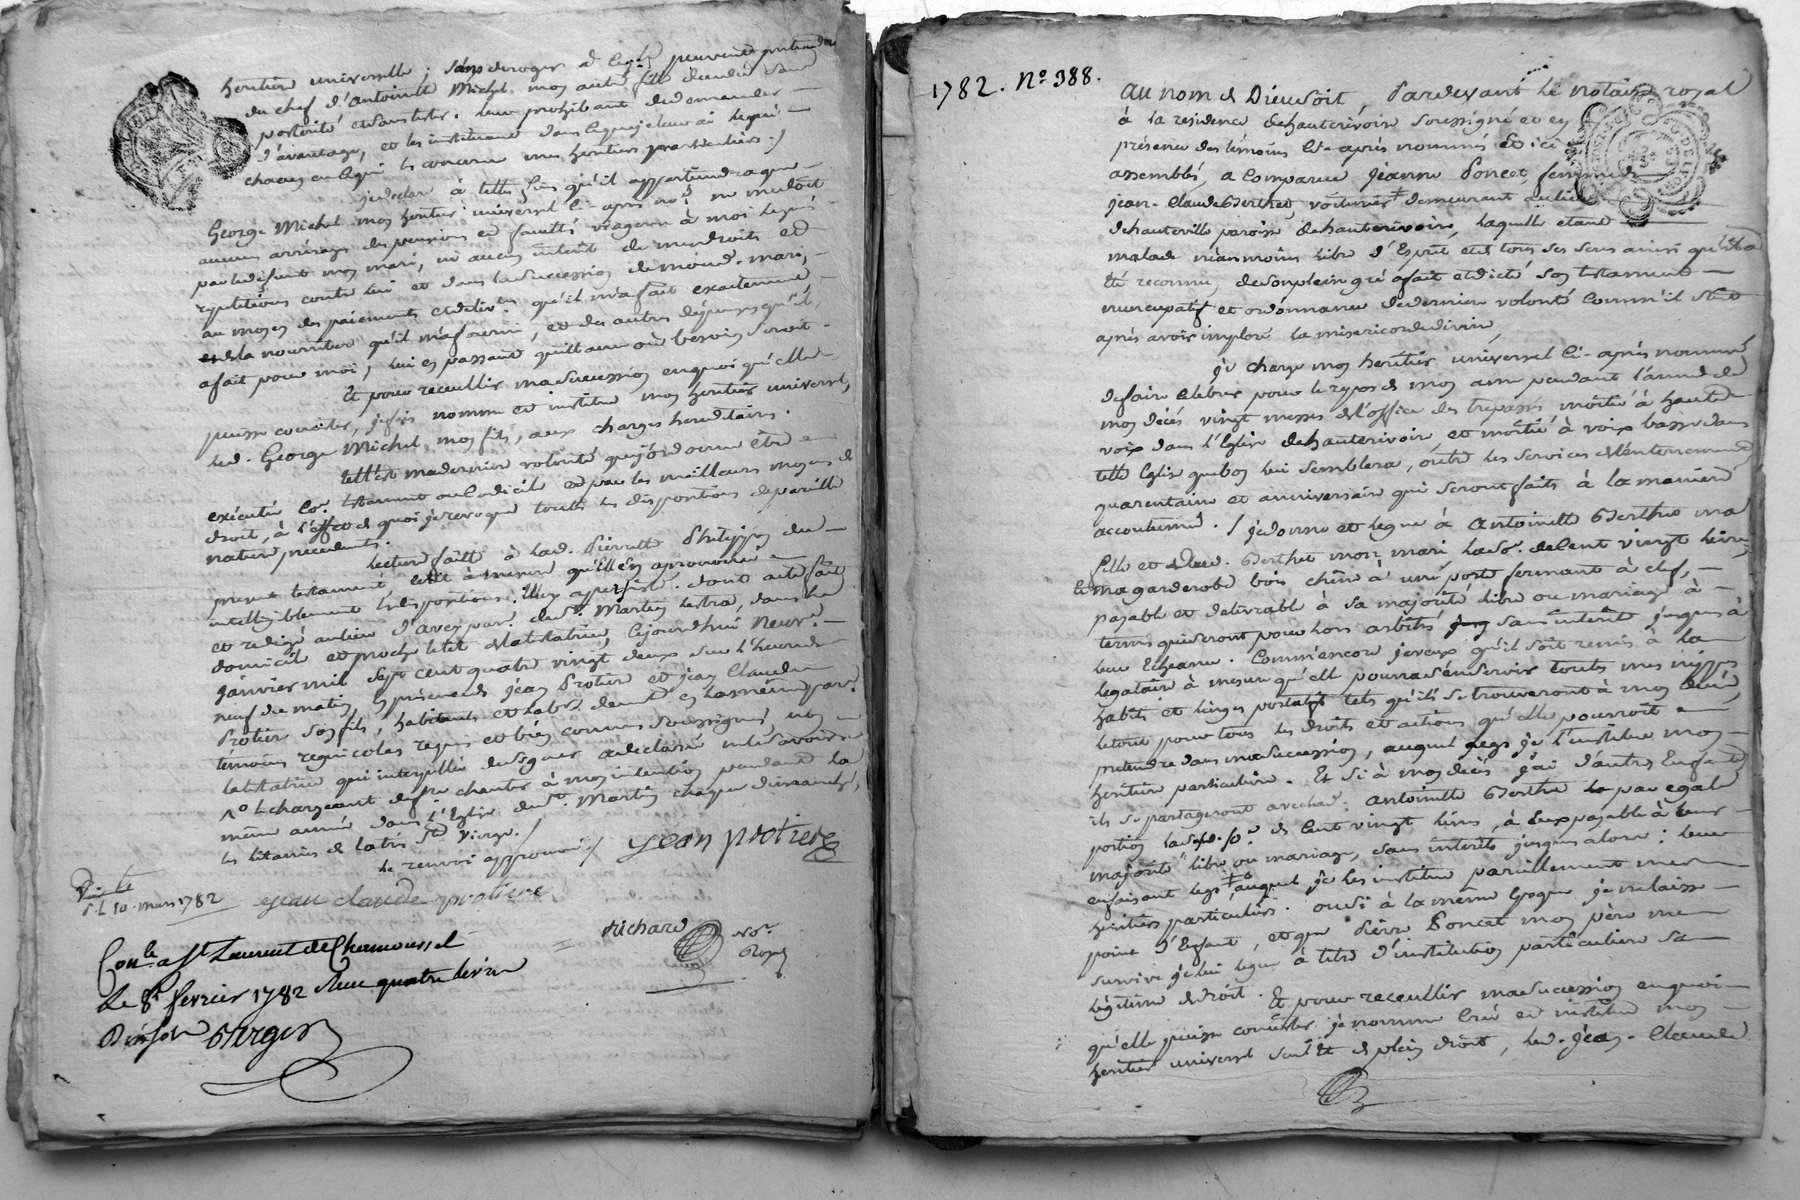 héritière universelle ; sans deroger à peuvent prétendre
du chef d'Antoinette Michel mon autre fille décédée sans
postérité leur prohibant de demander
d'avantage, et les instituant dans ce que je leur ai légué
chacun en ce qui les concerne mes héritiers particuliers./
je declare à telles fins qu'il appartiendra que
George Michel mon heritier universel ci-après né ne me doit
aucuns arrérages des pensions et viagères à moi léguées
par le defunt mon mari, ni aucun intérêt de mes droits et
répétitions contre lui et dans la succession de mond. mari,
au moyen des paiements qu'il m'a fait exactement
la nourriture qu'il m'a fournie, et des autres dépenses qu'il
a fait pour moi, lui en passant quittance où besoin seroit.
Et pour recueillir ma succession en quoi qu'elle
puisse consister, je fais nomme et institue mon héritier universel,
led. George Michel mon fils, aux charges hereditaires.
telle est ma dernière volonté que j'ordonne être
exécutée testament ou codicile et par les meilleurs moyens de
droit, à l'effet de quoi je revoque toutes les dispositions de pareille
nature précédents.
lecture faitte à lad. Pierrette Philippon du
présent testament à mesure qu'elle en a prononcé
intelligiblement les dispositions. Elle y a persisté. dont acte fait
et redigé au lieu d'avey par. du St. Martin lestra, dans le
domicile et proche le lit de la testatrice, cejourd'hui neuf.
janvier mil sept cent quatre vingt deux sur l'heure de
neuf du matin, En présence de jean Protière et jean Claude
Protière son fils, habitants et lab.rs demt. en la même par.
témoins regnicoles requis et bien connus soussignés, non
la testatrice qui interpellée de signer a declaré ne le savoir
N.º le chargeant de faire chanter à mon intention pendant la
même année dans l'Eglise dud. St. Martin chaque dimanche,
les litanies de la très Ste. Vierge./
le renvoi approuvé./ jean protiere
jean claude protiere
le 10. mars 1782
Richard No.re
Royal
Con.lé a St Laurent de Chamousset
Le 8e fevrier 1782 Reçu quatre livres
Berger
1782. Nº 388.
Au nom de Dieu soit, Pardevant le notaire royal
à la residence de hauterivoire soussigné et en
présence des témoins ci-après nommés et ici
assemblés, a comparue jeanne Poncet, femme de
jean-Claude Berthet, voiturier demeurant au lieu
de hauteville paroisse de hauterivoire, laquelle étant
malade néanmoins libre d'Esprit et de tous ses sens ainsi qu'il a
été reconnu, de son plein gré a fait et dicté son testament
nuncupatif et ordonnance de derniere volonté comm'il suit
après avoir imploré la misericorde divine,
je charge mon heritier universel ci-après nommé
de faire célébrer pour le repos de mon ame pendant l'année de
mon décès vingt messes de l'office des trepassés moitié à haute
voix dans l'Eglise de hauterivoire, et moitié à voix basse dans
telle Eglise que bon lui semblera, outre les services d'enterrement
quarantaine et anniversaire qui seront faits à la manière
accoutumée./ je donne et legue à Antoinette Berthet ma
fille et dud. Berthet mon mari la so.e de cent vingt livres,
et ma garderobe bois chêne à une porte fermant à clef,
payable et délivrable à sa majorité libre ou mariage à
termes qui seront pour lors arbitrés sans intérêt jusques à
leur Echeance. Comm'encore je veux qu'il soit remis à la
légataire à mesure qu'elle pourra s'en servir toutes mes nippes
habits et linges portatifs tels qu'ils se trouveront à mon décès,
le tout pour tous les droits et actions qu'elle pourroit
pretendre dans ma succession, auquel legs je l'institue mon
héritière particulière. Et si à mon décès j'ai d'autres Enfants
ils se partageront avec lad. Antoinette Berthet par egale
portion lad. so.e de cent vingt livres, à Eux payable à leur
majorité libre ou mariage, sans intérêts jusques alors : leur
en faisant legs auquel je les institue pareillement mes
héritiers particuliers. ou si à la même époque je ne laisse
point d'Enfant, et que Pierre Poncet mon père me
survive je lui legue à titre d'institution particulière sa
légitime de droit. Et pour recueillir ma succession en quoi
qu'elle puisse consister je nomme créé et institue mon
héritier universel seul et de plein droit, led. jean-Claude